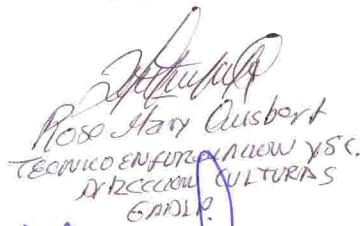 Rose Mary Ausbert
TECNICO EN FORMULACION Y S.C.
DIRECCION CULTURAS
GADLP.